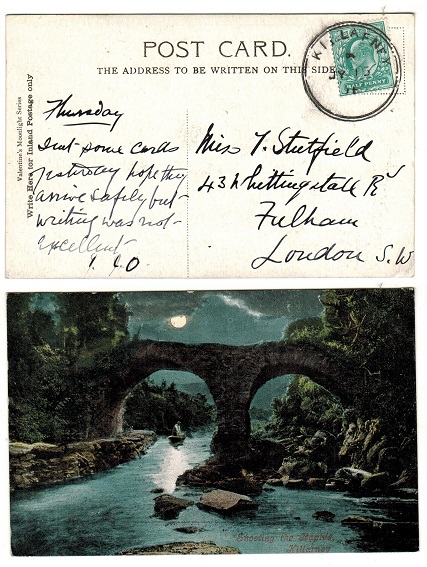 POST CARD.
THE ADDRESS TO BE WRITTEN ON THIS SIDE
KILLARNEY
HALF PENNY
Valentine's Moonlight Series
Write Here for Inland Postage only
Thursday
Sent some cards
yesterday hope they
arrive safely but
writing was not
excellent
Miss T. Stutfield
43 Whittingstall Rd
Fulham
London S.W
Shooting the Rapids,
Killarney